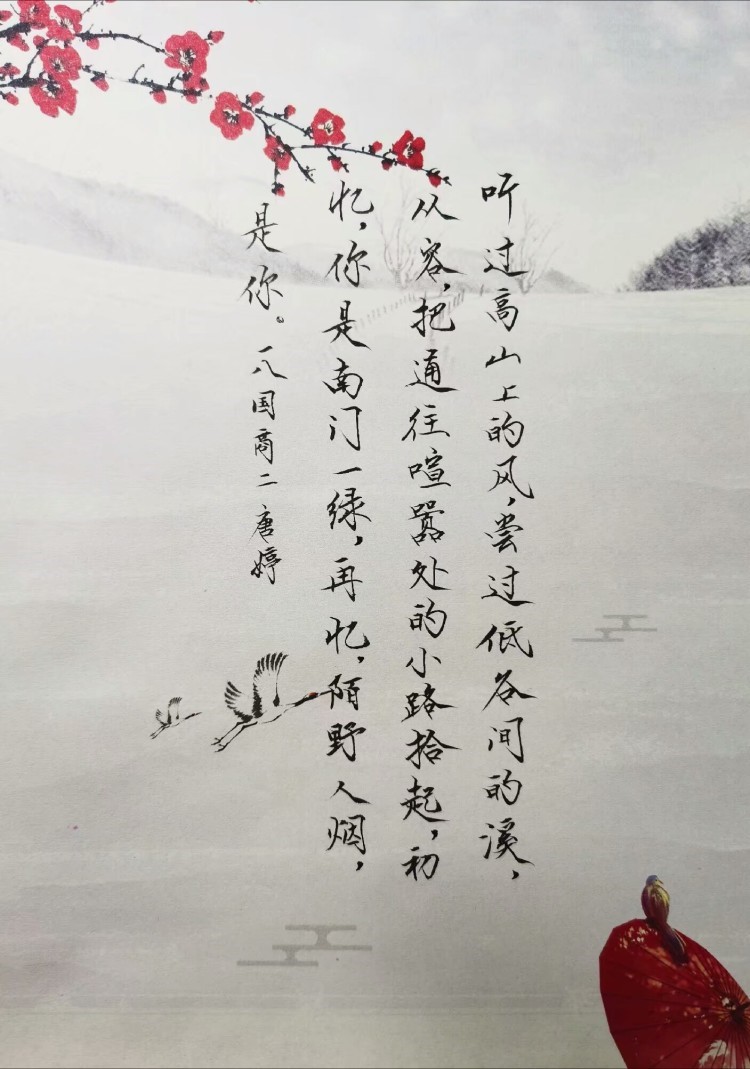 听过高山上的风，尝过低谷间的溪，
从容，把通往喧嚣处的小路拾起，初
忆，你是南门一绿，再忆，陌野人烟，
是你。一八国商二 唐婷